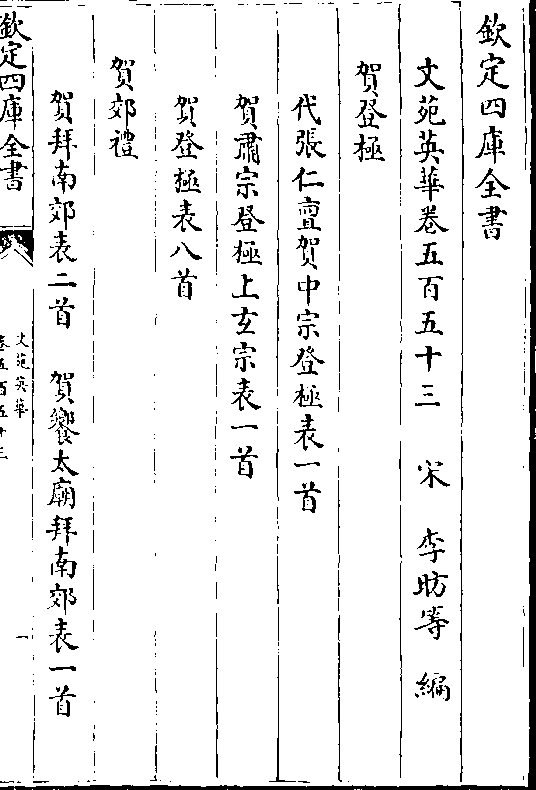 欽定四庫全書
文苑英華卷五百五十三　宋　李昉等　編
賀登極
代張仁亶賀中宗登極表一首
賀肅宗登極上玄宗表一首
賀登極表八首
賀郊禮
賀拜南郊表二首　賀饗太廟拜南郊表一首
欽定四庫全書
文苑英華
卷五百五十三
一